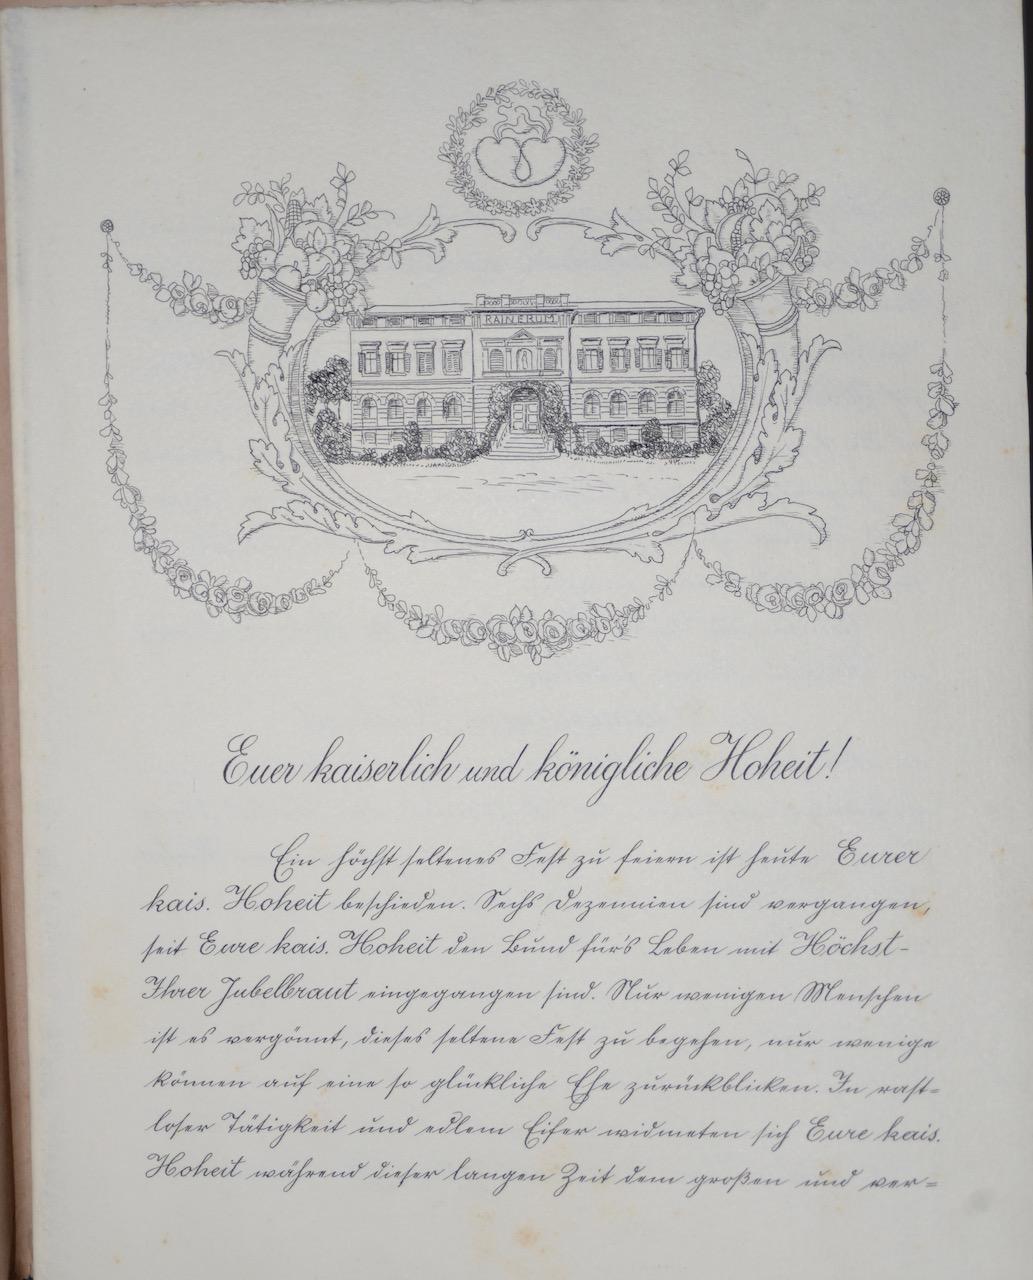 RAINERUM
Euer kaiserlich und königliche Hoheit!
Ein höchst seltenes Fest zu feiern ist heute Eurer
kais. Hoheit beschieden. Sechs Dezennien sind vergangen,
seit Eure kais. Hoheit den Bund für's Leben mit Höchst-
Ihrer Jubelbraut eingegangen sind. Nur wenigen Menschen
ist es vergönnt, dieses seltene Fest zu begehen, nur wenige
können auf eine so glückliche Ehe zurückblicken. In rast=
loser Tätigkeit und edlem Eifer widmeten sich Eure kais.
Hoheit während dieser langen Zeit dem großen und ver=